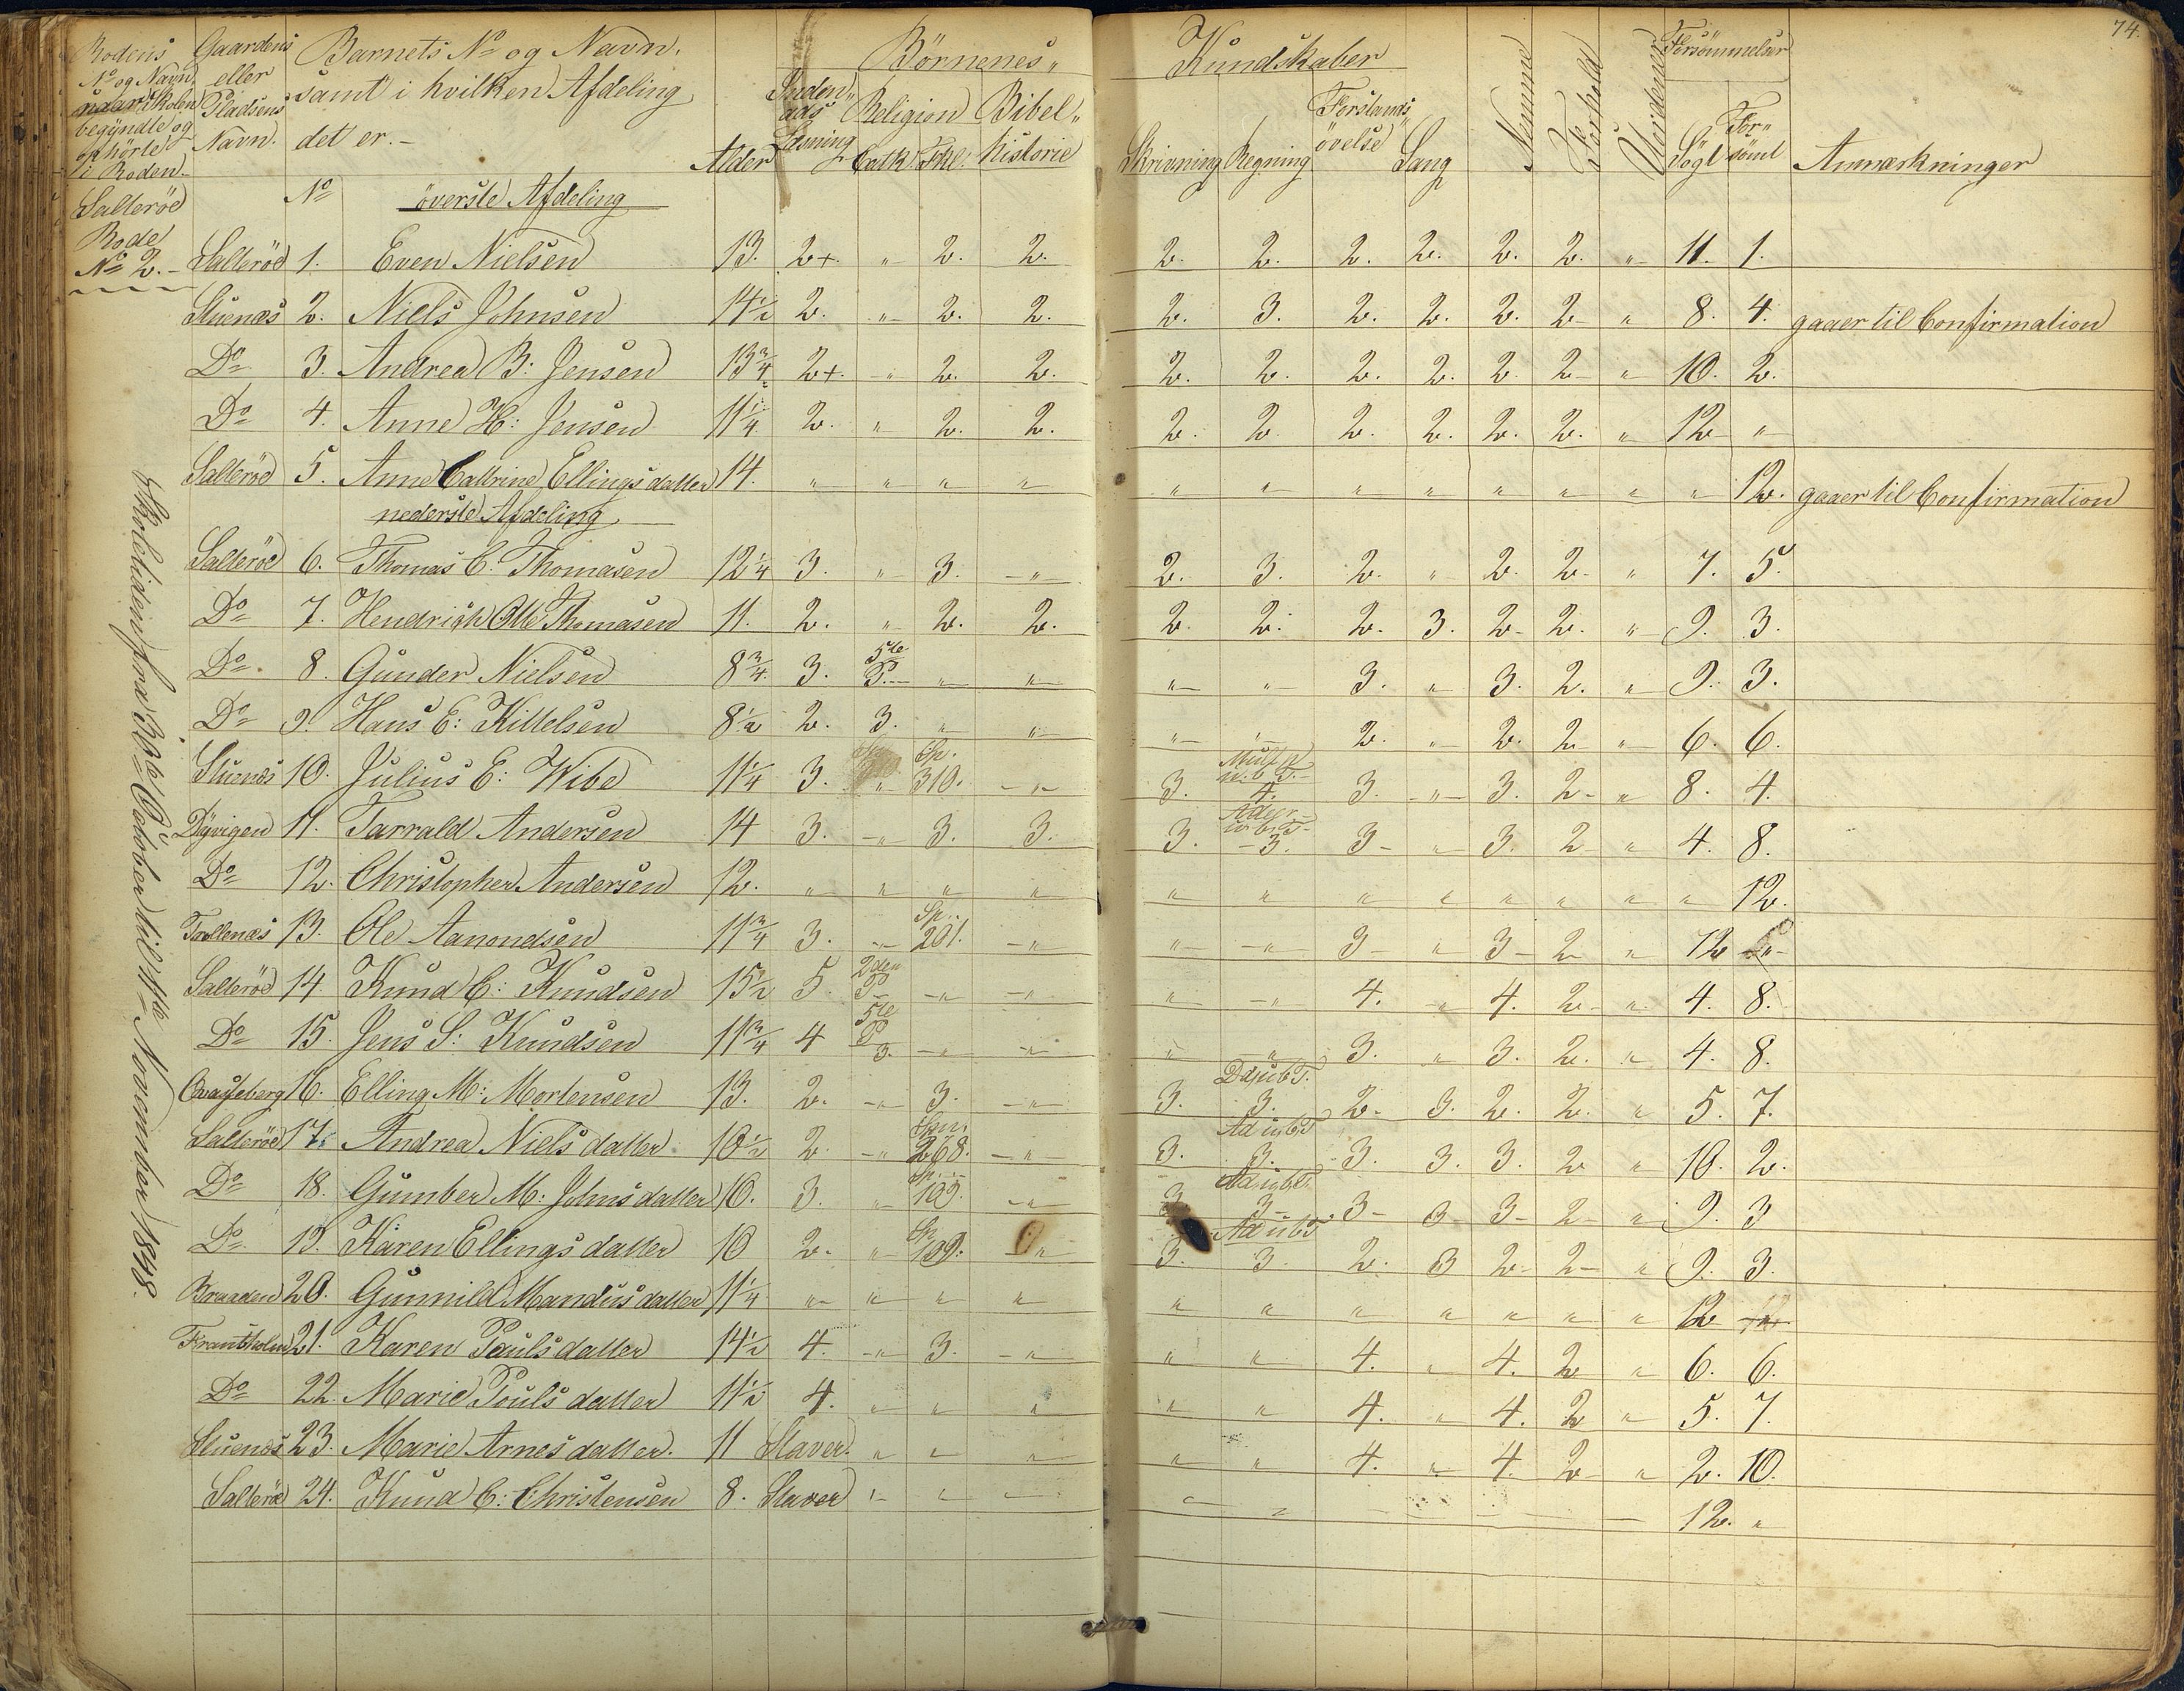 74.
Rodens No og Navn, naar Skolen begyndte og ophörte i Roden.-
Gaardens eller Pladsens Navn.
Barnets No og Navn, samt i hvilken Afdeling det er.-
Alder
Börnenes„ Kundskaber
Inden„ ads Læsning
Religion Catk. Fkl.
Bibel„ historie
Skrivning
Regning
Forstands„ övelse
Sang
Nemme
Forhold
Uordener
Forsömmelser
Sögt
For„ sömt
Anmærkninger
Salteröd Rode No 2.-
Skoletiden fra 30te October til 11te November 1848.
No överste Afdeling
Salteröd 1. Even Nielsen 13. 2+. „ 2. 2. 2. 2. 2. 2. 2. 2. „ 11. 1.
Stuenæs 2. Niels Johnsen 14½ 2. „ 2. 2. 2. 3. 2. 2. 2. 2 „ 8. 4. gaaer til Confirmation
Do 3. Andrea B: Jensen 13¾ 2+. „ 2. 2. 2. 2. 2. 2. 2. 2 „ 10. 2.
Do 4. Anne H: Jensen 11¼ 2. „ 2. 2. 2. 2 2. 2. 2. 2. „ 12 „
Salteröd 5. Anne Cathrine Ellingsdatter 14. „ „ „ „ „ „ „ „ „ „ „ „ 12. gaaer til Confirmation
nederste Afdeling
Salteröd 6. Thomas C. Thomasen 12¼ 3. „ 3. „ 2. 3. 2. „ 2. 2. „ 7. 5.
Do 7. Hendrich Otto Thomasen 11. 2. „ 2. 2. 2 2. 2. 3. 2. 2. „ 9. 3.
Do 8. Gunder Nielsen 8¾ 3. 5te P. „ „ „ „ 3. „ 3. 2. „ 9. 3.
Do 9. Hans E: Kittelsen 8½ 2. 3. „ „ „ „ 2. „ 2. 2 „ 6. 6.
Stuenæs 10. Julius E: Wibe 11¼ 3. „ Sp. 310. „ 3. 4. 3. „ 3. 2 „ 8. 4.
Dyvigen 11. Tarrald Andersen 14 3. „ 3. 3. 3. 3. 3 „ 3. 2 „ 4. 8.
Do 12. Christopher Andersen 12. „ „ „ „ „ „ „ „ „ „ „ „ 12.
Trollenæs 13. Ole Aanondsen 11¾ 3. „ Sp. 201. „ „ „ 3 „ 3 2 „ 12 „
Salteröd 14. Knud C: Knudsen 15½ 5 2den P „ „ „ „ 4. „ 4. 2 „ 4. 8.
Do 15. Jens S: Knudsen 11¾ 4 5te P 3. „ „ „ „ 3. „ 3. 2. „ 4. 8.
16. Elling M: Mortensen 13. 2. „ 3. „ 3. 3. 2 3. 2. 2. „ 5. 7.
Salteröd 17. Andrea Nielsdatter 10½ 2. „ 268. „ 3. 3. 3. 3. 3. 2 „ 10. 2.
Do 18. Gumber M: Johnsdatter 10. 3. „ Sp. 109. „ 3 3 3 3 3 2 „ 9. 3
Do 19. Karen Ellingsdatter 10 2. „ Sp 109. „ 3. 3. 2. 3 2 2 „ 9. 3.
Braaden 20. Gunnild Mandiusdatter 11¼ „ „ „ „ „ „ „ „ „ „ „ 12 „
Frantsholm 21. Karen Poulsdatter 14½ 4. „ 3. „ „ „ 4. „ 4. 2 „ 6. 6.
Do 22. Marie Poulsdatter 11½ 4. „ „ „ „ „ 4. „ 4. 2 „ 5. 7.
Stuenæs 23. Marie Arnesdatter. 11 Staver. „ „ „ „ „ 4. „ 4. 2 „ 2. 10.
Salteröd 24. Knud C: Christensen 8. Staver „ „ „ „ „ „ „ „ „ „ 12. „